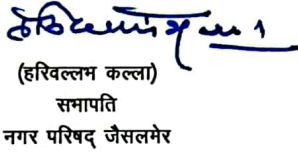 (हरिवल्लभ कल्ला)
सभापति
नगर परिषद् जैसलमेर